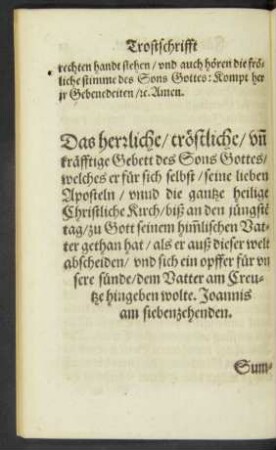 Trostschrifft
rechten handt stehen / vnd auch hören die frö
liche stimme des Sons Gottes: Kompt her
jr Gebenedeiten / ꝛc. Amen.
Das herrliche / tröstliche / vn̄
kräfftige Gebett des Sons Gottes /
welches er für sich selbst / seine lieben
Aposteln / vnnd die gantze heilige
Christliche Kirch / biß an den jüngstē
tag / zu Gott seinem him̄lischen Vat-
ter gethan hat / als er auß dieser welt
abscheiden / vnd sich ein opffer für vn
sere sünde / dem Vatter am Creu-
tze hingeben wolte. Joannis
am siebenzehenden.
Sum-